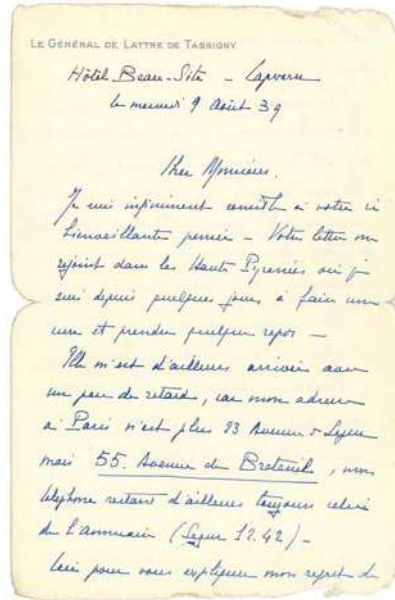 LE GÉNÉRAL DE LATTRE DE TASSIGNY
Hôtel Beau-Site - Capvern
le mercredi 9 Août 39
Cher Monsieur,
Je suis infiniment sensible à votre si
bienveillante pensée - Votre lettre me
rejoint dans les Hautes Pyrénées où je
suis depuis quelques jours à faire une
cure et prendre quelque repos -
Elle m'est d'ailleurs arrivée avec
un peu de retard, car mon adresse
à Paris n'est plus 93 Avenue de Ségur
mais 55. Avenue de Breteuil, mon
téléphone restant d'ailleurs toujours celui
de l'annuaire (Segur 12.42) -
Ceci pour vous expliquer mon regret de